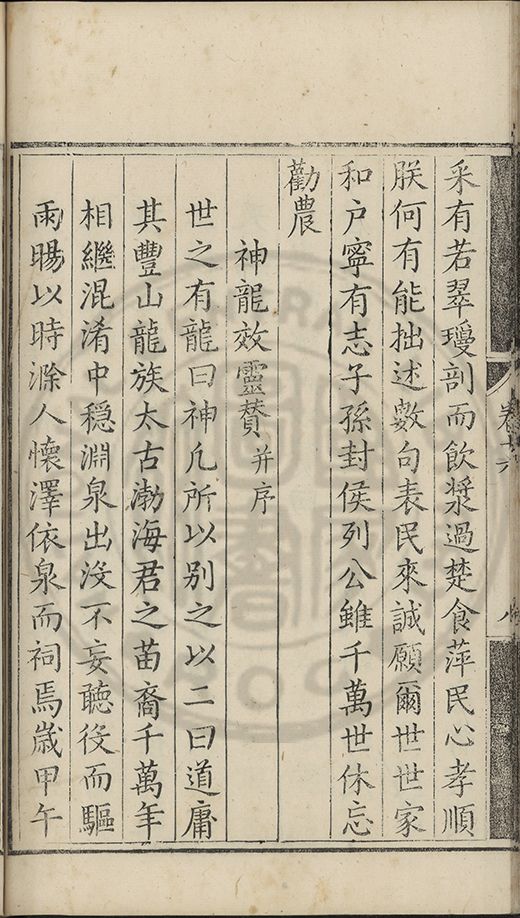 采有若翠瓊剖而飲漿過楚食萍民心孝順
朕何有能拙述數句表民來誠願爾世世家
和户寧有志子孫封侯列公雖千萬世休忘
勸農
神龍效靈贊并序
世之有龍曰神凡所以别之以二曰道庸
其豐山龍族太古渤海君之苗裔千萬年
相繼混淆中穏淵泉出没不妄聽役而驅
雨暘以時滁人懷澤依泉而祠焉歲甲午
卷十六
八